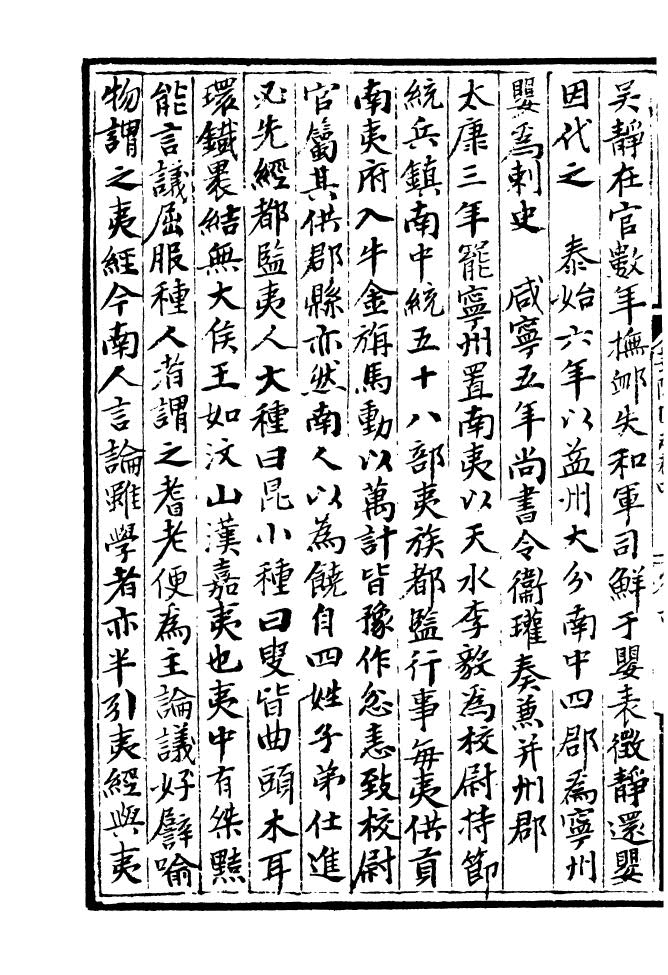 吴靜在官數年撫卹失和軍司鮮于嬰表徵靜還嬰
因代之　泰始六年以益州大分南中四郡爲寧州
嬰爲刺史　咸寧五年尚書令衞瓘奏蒹并州郡
太康三年罷寧州置南夷以天水李毅爲校尉持節
統兵鎮南中統五十八部夷族都監行事每夷供貢
南夷府入牛金旃馬動以萬計皆豫作忿恚致校尉
官屬其供郡縣亦然南人以為饒自四姓子弟仕進
必先經都監夷人大種曰昆小種曰叟皆曲頭木耳
環鐵裹結無大侯王如汶山漢嘉夷也夷中有桀黠
能言議屈服種人者謂之耆老便為主論議好譬喻
物謂之夷經今南人言論雖學者亦半引夷經與夷